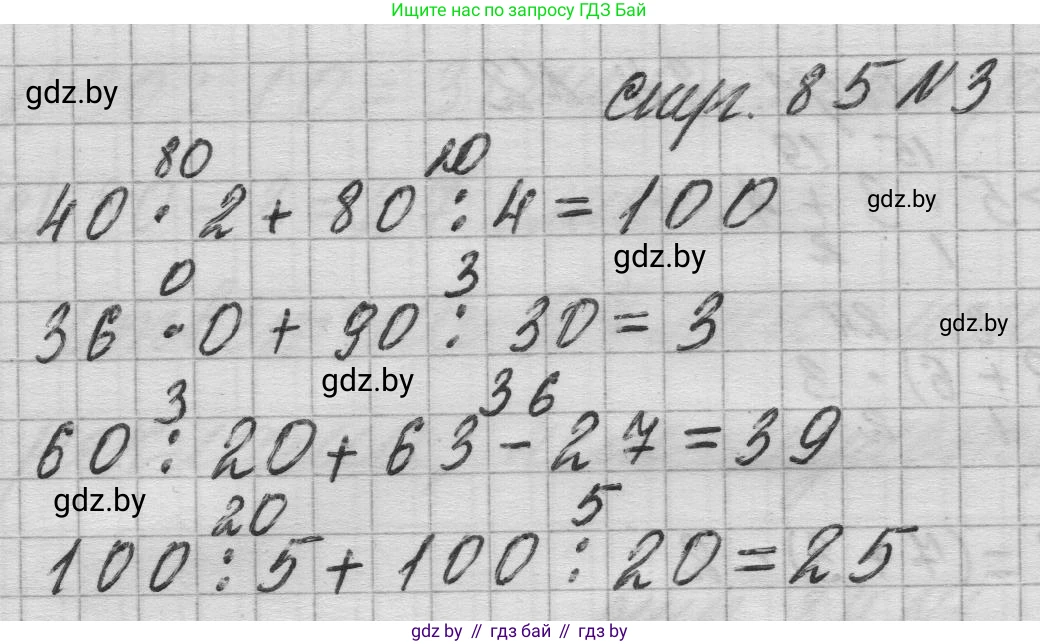 Ищите нас по запросу ГДЗ Бай
gdz.by
стр. 85 №3
80 20
40 · 2 + 80 : 4 = 100
gdz.by
gdz.by
0 3
36 · 0 + 90 : 30 = 3
gdz.by
gdz.by
3 36
60 : 20 + 63 - 27 = 39
gdz.by
20 5
100 : 5 + 100 : 20 = 25
gdz.by // гдз бай // гдз by